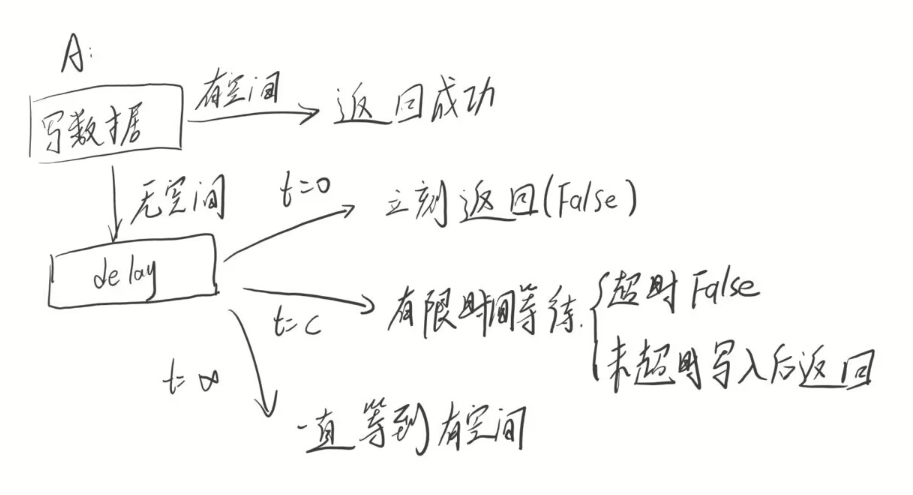 A:
写数据
有空间
返回成功
无空间
t=0
立刻返回(False)
delay
t=c
有限时间等待
超时False
未超时写入后返回
t=∞
一直等到有空间